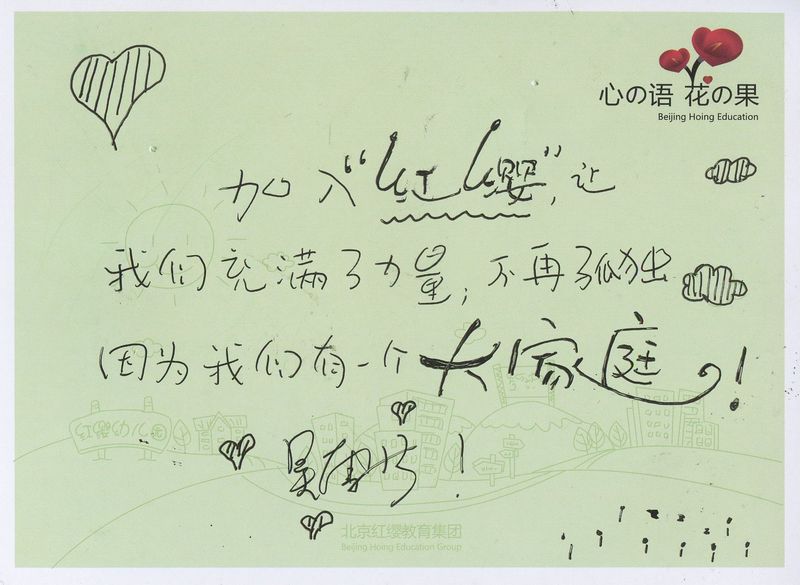 心の语 花の果
Beijing Hoing Education
加入“红缨”，让
我们充满了力量；不再孤独
因为我们有一个大家庭！
北京红缨教育集团
Beijing Hoing Education Group